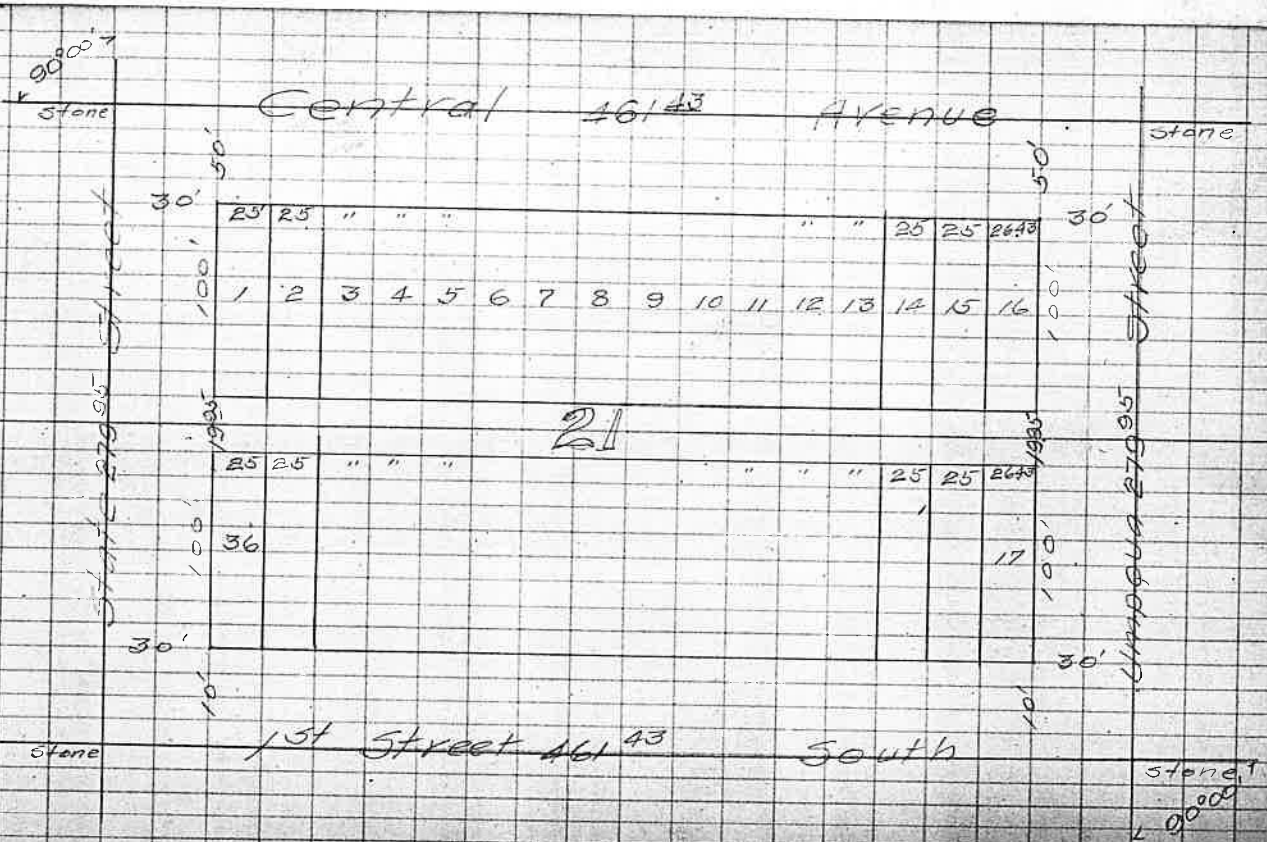 90°00'
stone
Central 461 43 Avenue
stone
50'
50'
30'
25' 25 " " " " " 25 25 26.43
30'
100'
1 2 3 4 5 6 7 8 9 10 11 12 13 14 15 16
100'
State 279.95 Street
Umpqua 279.95 Street
19.95
21
19.95
25 25 " " " " " " 25 25 26.43
100'
36
17
100'
30'
30'
10'
10'
stone
1st Street 461 43 South
stone
90°00'